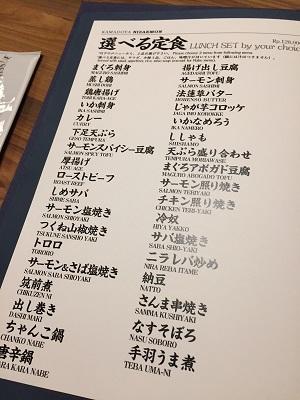 KAMADOYA NIZAEMON
選べる定食 LUNCH SET by your choice
Rp.120,00
まぐろ刺身
MAGURO SASHIMI
蒸し鶏
MUSHI DORI
鶏唐揚げ
TORI KARA-AGE
いか刺身
IKA SASHIMI
カレー
CURRY
下足天ぷら
GESO TEMPURA
サーモンスパイシー豆腐
SALMON SPICY TOFU
厚揚げ
ATSU AGE
ローストビーフ
ROAST BEEF
しめサバ
SHIME SABA
サーモン塩焼き
SALMON SHIOYAKI
つくね山椒焼き
TSUKUNE SANSHO YAKI
トロロ
TORORO
サーモン&さば塩焼き
SALMON SABA SHIOYAKI
筑前煮
CHIKUZEN NI
出し巻き
DASHI MAKI
ちゃんこ鍋
CHANKO NABE
唐辛鍋
KARA KARA NABE
揚げ出し豆腐
AGEDASHI TOFU
サーモン刺身
SALMON SASHIMI
法蓮草バター
HORENSO BUTTER
じゃが芋コロッケ
JAGA IMO KOROKKE
いかなめろう
IKA NAMERO
ししゃも
SHISHAMO
天ぷら盛り合わせ
TEMPURA MORIAWASE
まぐろアボガド豆腐
MAGURO ABOGADO TOFU
サーモン照り焼き
SALMON TERIYAKI
チキン照り焼き
CHICKEN TERI-YAKI
冷奴
HIYA YAKKO
サバ塩焼き
SABA SHIO-YAKI
ニラレバ炒め
NIRA REBA ITAME
納豆
NATTO
さんま串焼き
SAMMA KUSHIYAKI
なすそぼろ
NASU SOBORO
手羽うま煮
TEBA UMA-NI